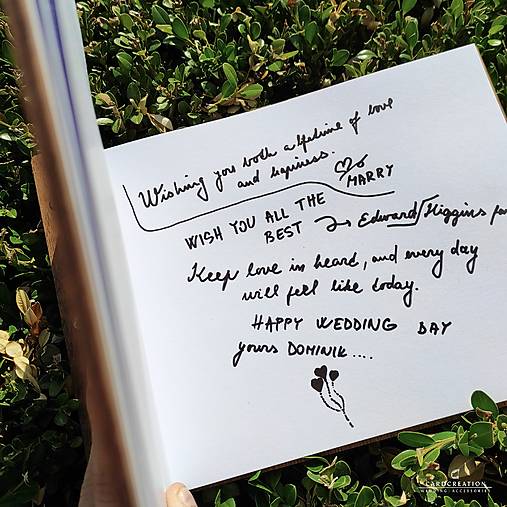 Wishing you both a lifetime of love
and hapiness.
MARRY
WISH YOU ALL THE
BEST
Edward Higgins
Keep love in heard, and every day
will fell like today.
HAPPY WEDDING DAY
yours DOMINIK....
CARDCREATION
WEDDING ACCESSORIES